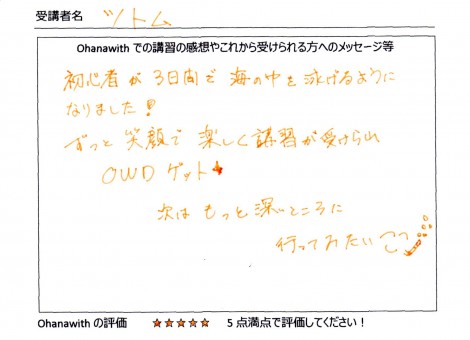 受講者名 ツトム
Ohanawith での講習の感想やこれから受けられる方へのメッセージ等
初心者が3日間で海の中を泳げるように
なりました!
ずっと笑顔で楽しく講習が受けられ
OWDゲット
次はもっと深いところに
行ってみたい
Ohanawith の評価 ★★★★★ 5点満点で評価してください!